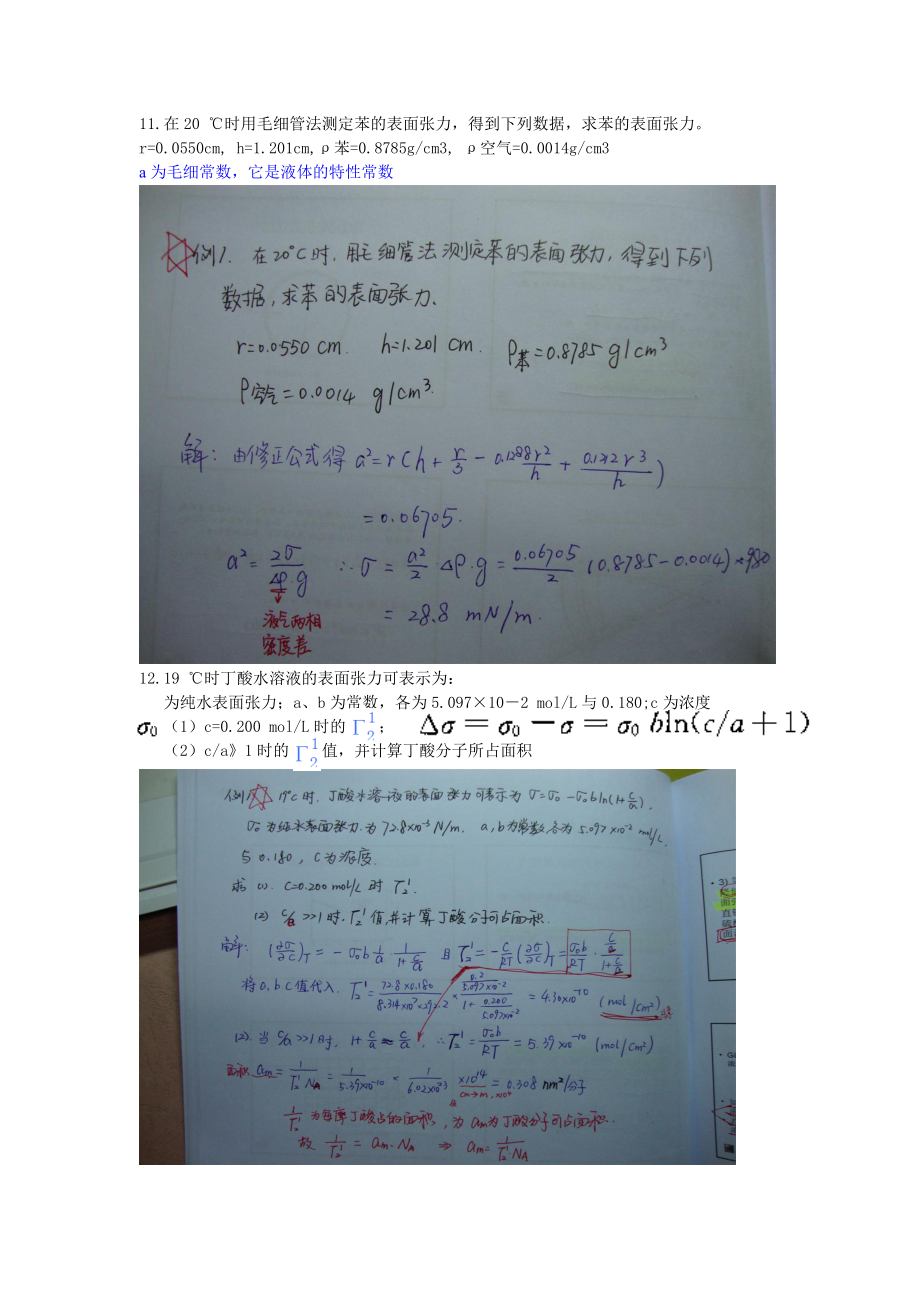 11.在 20 ℃时用毛细管法测定苯的表面张力，得到下列数据，求苯的表面张力。
r=0.0550cm, h=1.201cm,ρ苯=0.8785g/cm3, ρ空气=0.0014g/cm3
a 为毛细常数，它是液体的特性常数
例1. 在20℃时.用毛细管法测定苯的表面张力，得到下列
数据，求苯的表面张力.
r=0.0550 cm. h=1.201 cm. ρ苯=0.8785 g/cm³
ρ空气=0.0014 g/cm³.
解：由修正公式得 a²=r(h+r/3-0.1288r²/h+0.1312r³/h)
=0.06705.
a²=2σ/Δρ·g ∴σ=a²/2·Δρ·g=0.06705/2(0.8785-0.0014)×980
=28.8 mN/m.
液气两相
密度差
12.19 ℃时丁酸水溶液的表面张力可表示为：
为纯水表面张力；a、b 为常数，各为 5.097×10－2 mol/L 与 0.180;c 为浓度
σ0 （1）c=0.200 mol/L 时的 Γ₂¹； Δσ＝σ0－σ＝σ0 bln(c/a＋1)
（2）c/a》1 时的 Γ₂¹ 值，并计算丁酸分子所占面积
19℃时.丁酸水溶液的表面张力可表示为σ=σ0-σ0bln(1+c/a).
σ0为纯水表面张力.为72.8×10⁻³N/m. a,b为常数各为5.097×10⁻² mol/L.
与0.180，c为浓度.
求(1). C=0.200mol/L时Γ₂¹.
(2) c/a>>1时.Γ₂¹值并计算丁酸分子所占面积.
解：(∂σ/∂c)T=-σ0b·1/a·1/(1+c/a) 且Γ₂¹=-c/RT(∂σ/∂c)T=σ0b/RT·(c/a)/(1+c/a)
将a.b.c值代入. Γ₂¹=72.8×0.180/8.314×10⁷×292.2×(0.2/5.097×10⁻²)/(1+0.200/5.097×10⁻²)=4.30×10⁻¹⁰(mol/cm²)
(2).当c/a>>1时，1+c/a≈c/a，∴Γ₂¹=σ0b/RT=5.39×10⁻¹⁰(mol/cm²)
面积am=1/Γ₂¹NA=1/5.39×10⁻¹⁰×1/6.02×10²³ ×10¹⁴=0.308 nm²/分子
1/Γ₂¹为每摩丁酸占的面积，为am为丁酸分子所占面积.
故1/Γ₂¹=am·NA⇒am=1/Γ₂¹NA